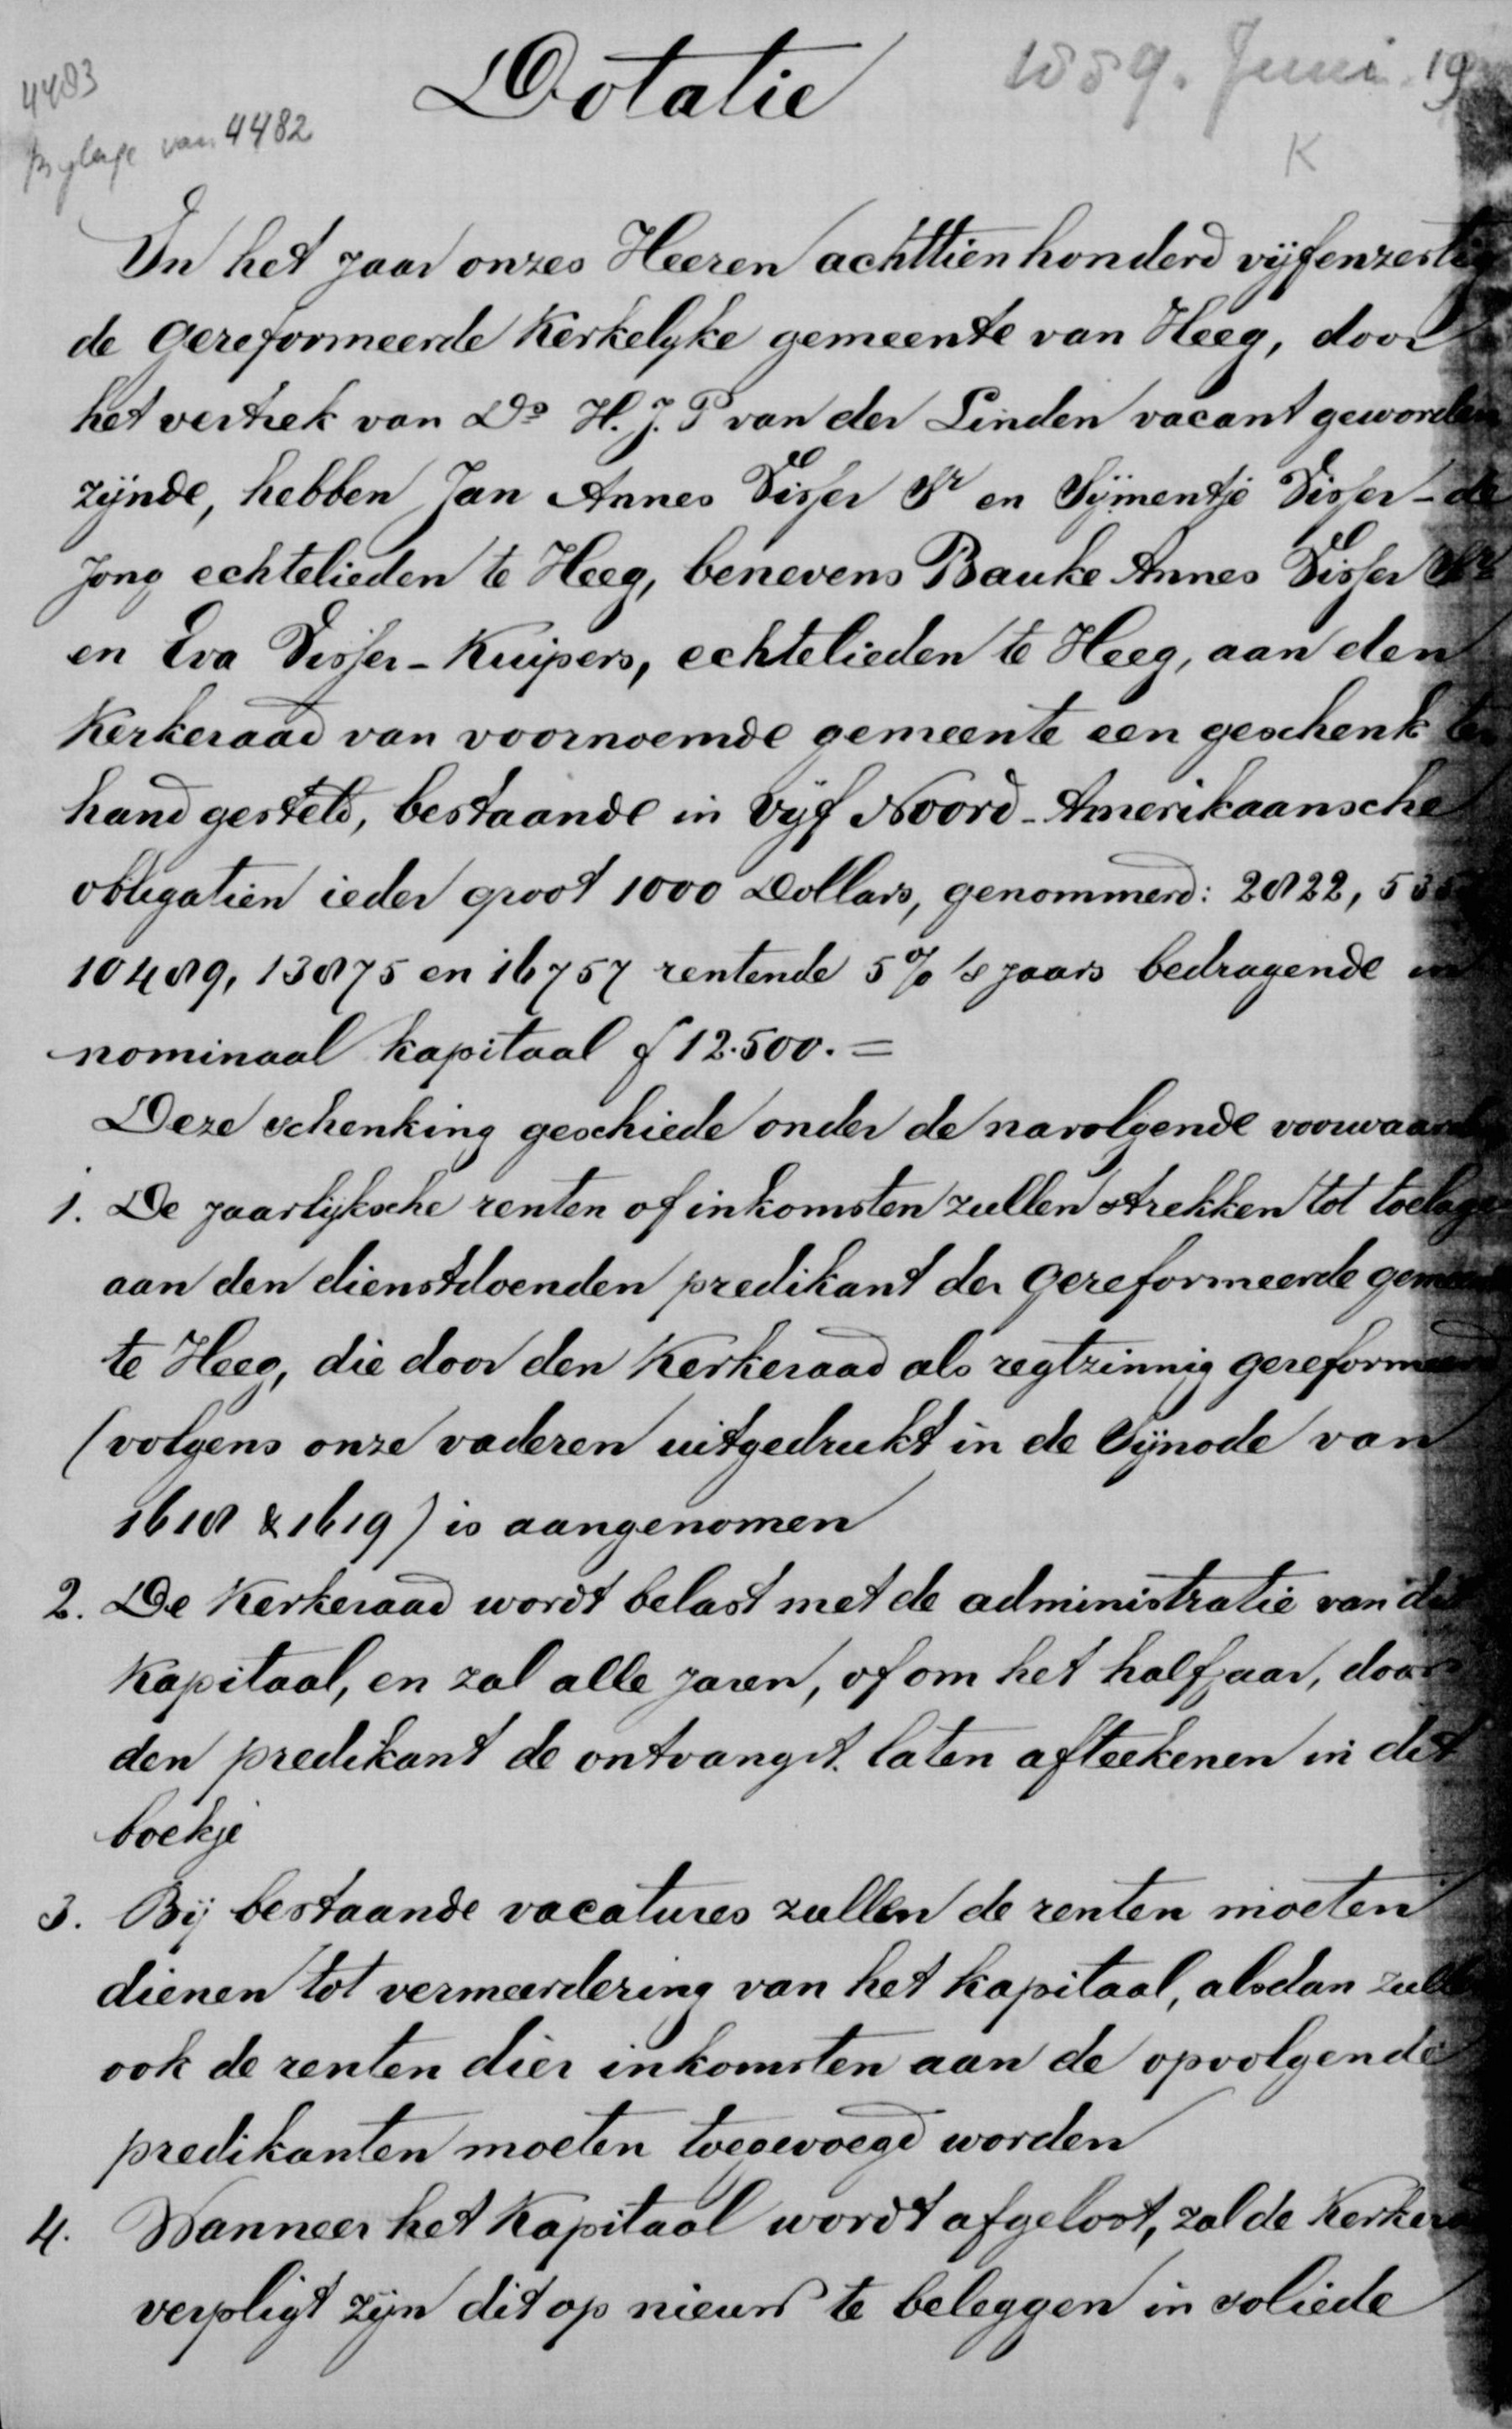 4483
Bylage van 4482
Dotatie
1889. Juni 19
K
In het jaar onzes Heeren achttienhonderd vijfenzestig
de Gereformeerde Kerkelyke gemeente van Heeg, door
het vertrek van Ds H. J. P van der Linden vacant geworden
zijnde, hebben Jan Annes Visser Sr en Sijmentje Visser - de
Jong echtelieden te Heeg, benevens Bauke Annes Visser Sr
en Eva Visser - Kuipers, echtelieden te Heeg, aan den
Kerkeraad van voornoemde gemeente een geschenk ter
hand gesteld, bestaande in vijf Noord-Amerikaansche
obligatien ieder groot 1000 Dollars, genommerd: 2822,
10489, 13875 en 16757 rentende 5% 's jaars bedragende in
nominaal kapitaal f 12.500. =
Deze schenking geschiede onder de navolgende voorwaard
1. De jaarlijksche renten of inkomsten zullen strekken tot toelage
aan den dienstdoenden predikant der Gereformeerde gemeente
te Heeg, die door den Kerkeraad als regtzinnig gereformeerd
(volgens onze vaderen uitgedrukt in de Sijnode van
1618 & 1619) is aangenomen
2. De Kerkeraad wordt belast met de administratie van dit
Kapitaal, en zal alle jaren, of om het halfjaar, door
den predikant de ontvangst laten afteekenen in dit
boekje
3. Bij bestaande vacatures zullen de renten moeten
dienen tot vermeerdering van het kapitaal, alsdan zullen
ook de renten dier inkomsten aan de opvolgende
predikanten moeten toegevoegd worden
4. Wanneer het Kapitaal wordt afgelost, zal de Kerkeraad
verpligt zijn dit op nieuw te beleggen in soliede